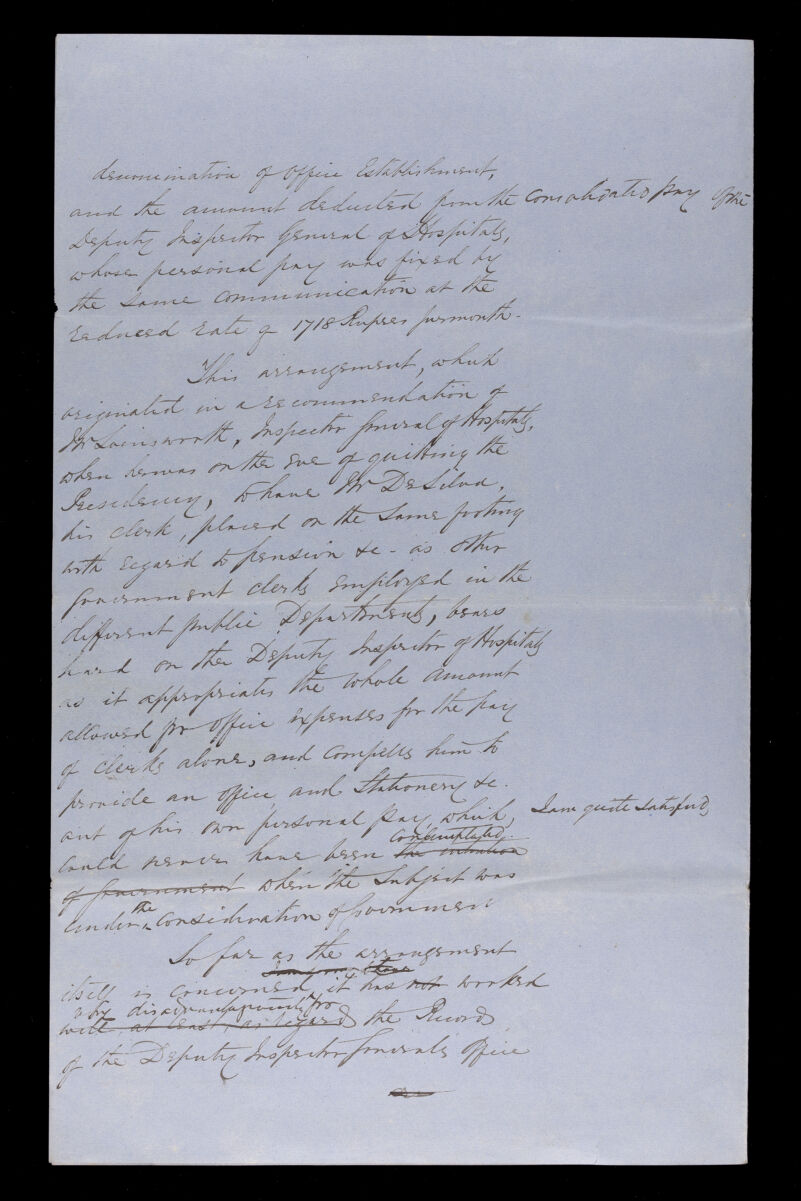 denomination of Office Establishment,
and the amount deducted from the consolidated pay of the
Deputy Inspector General of Hospitals,
whose personal pay was fixed by
the same communication at the
reduced rate of 1718 Rupees per month -
This arrangement, which
originated in a recommendation of
Mr Lainsworth, Inspector General of Hospitals,
when he was on the eve of quitting the
Presidency, to have Mr De Silva,
his clerk, placed on the same footing
with regard to pension &c - as other
Government clerks employed in the
different public Departments, bears
hard on the Deputy Inspector of Hospitals
as it appropriates the whole amount
allowed for office expenses for the pay
of clerks alone, and compells him to
provide an office and Stationery &c.
out of his own personal pay, which, I am quite satisfied,
contemplated
could never have been the intention
of Government when the subject was
under the consideration of Government
So far as the arrangement
itself is concerned, it has not worked
very disadvantageously for
well at least, as regards the Records
of the Deputy Inspector General's Office